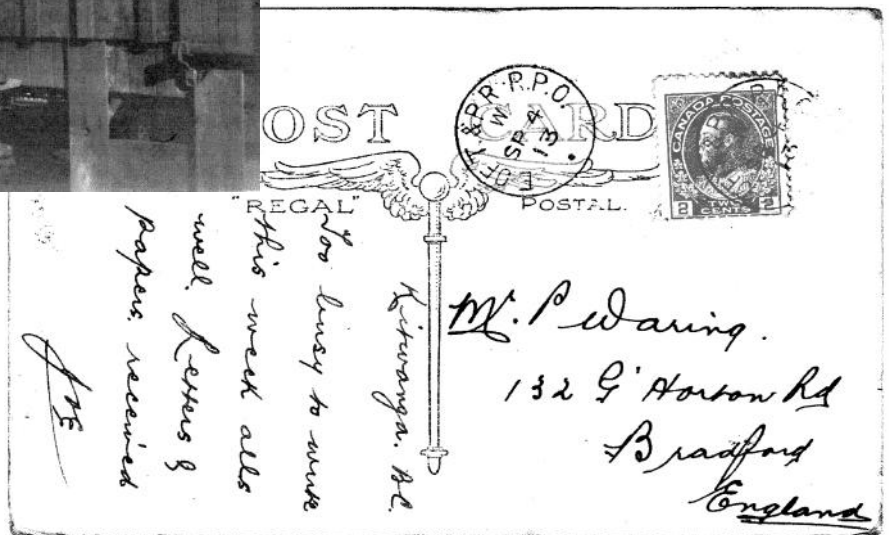 OST CARD
"REGAL" POSTAL.
E. OF T & P.R. R.P.O.
W
SP 4
13
CANADA POSTAGE
2 TWO CENTS 2
Kitwanga. B.C.
Too busy to write
this week alls
well. Letters &
papers received
Joe
Mr. P Waring.
132 Gt Horton Rd
Bradford
England